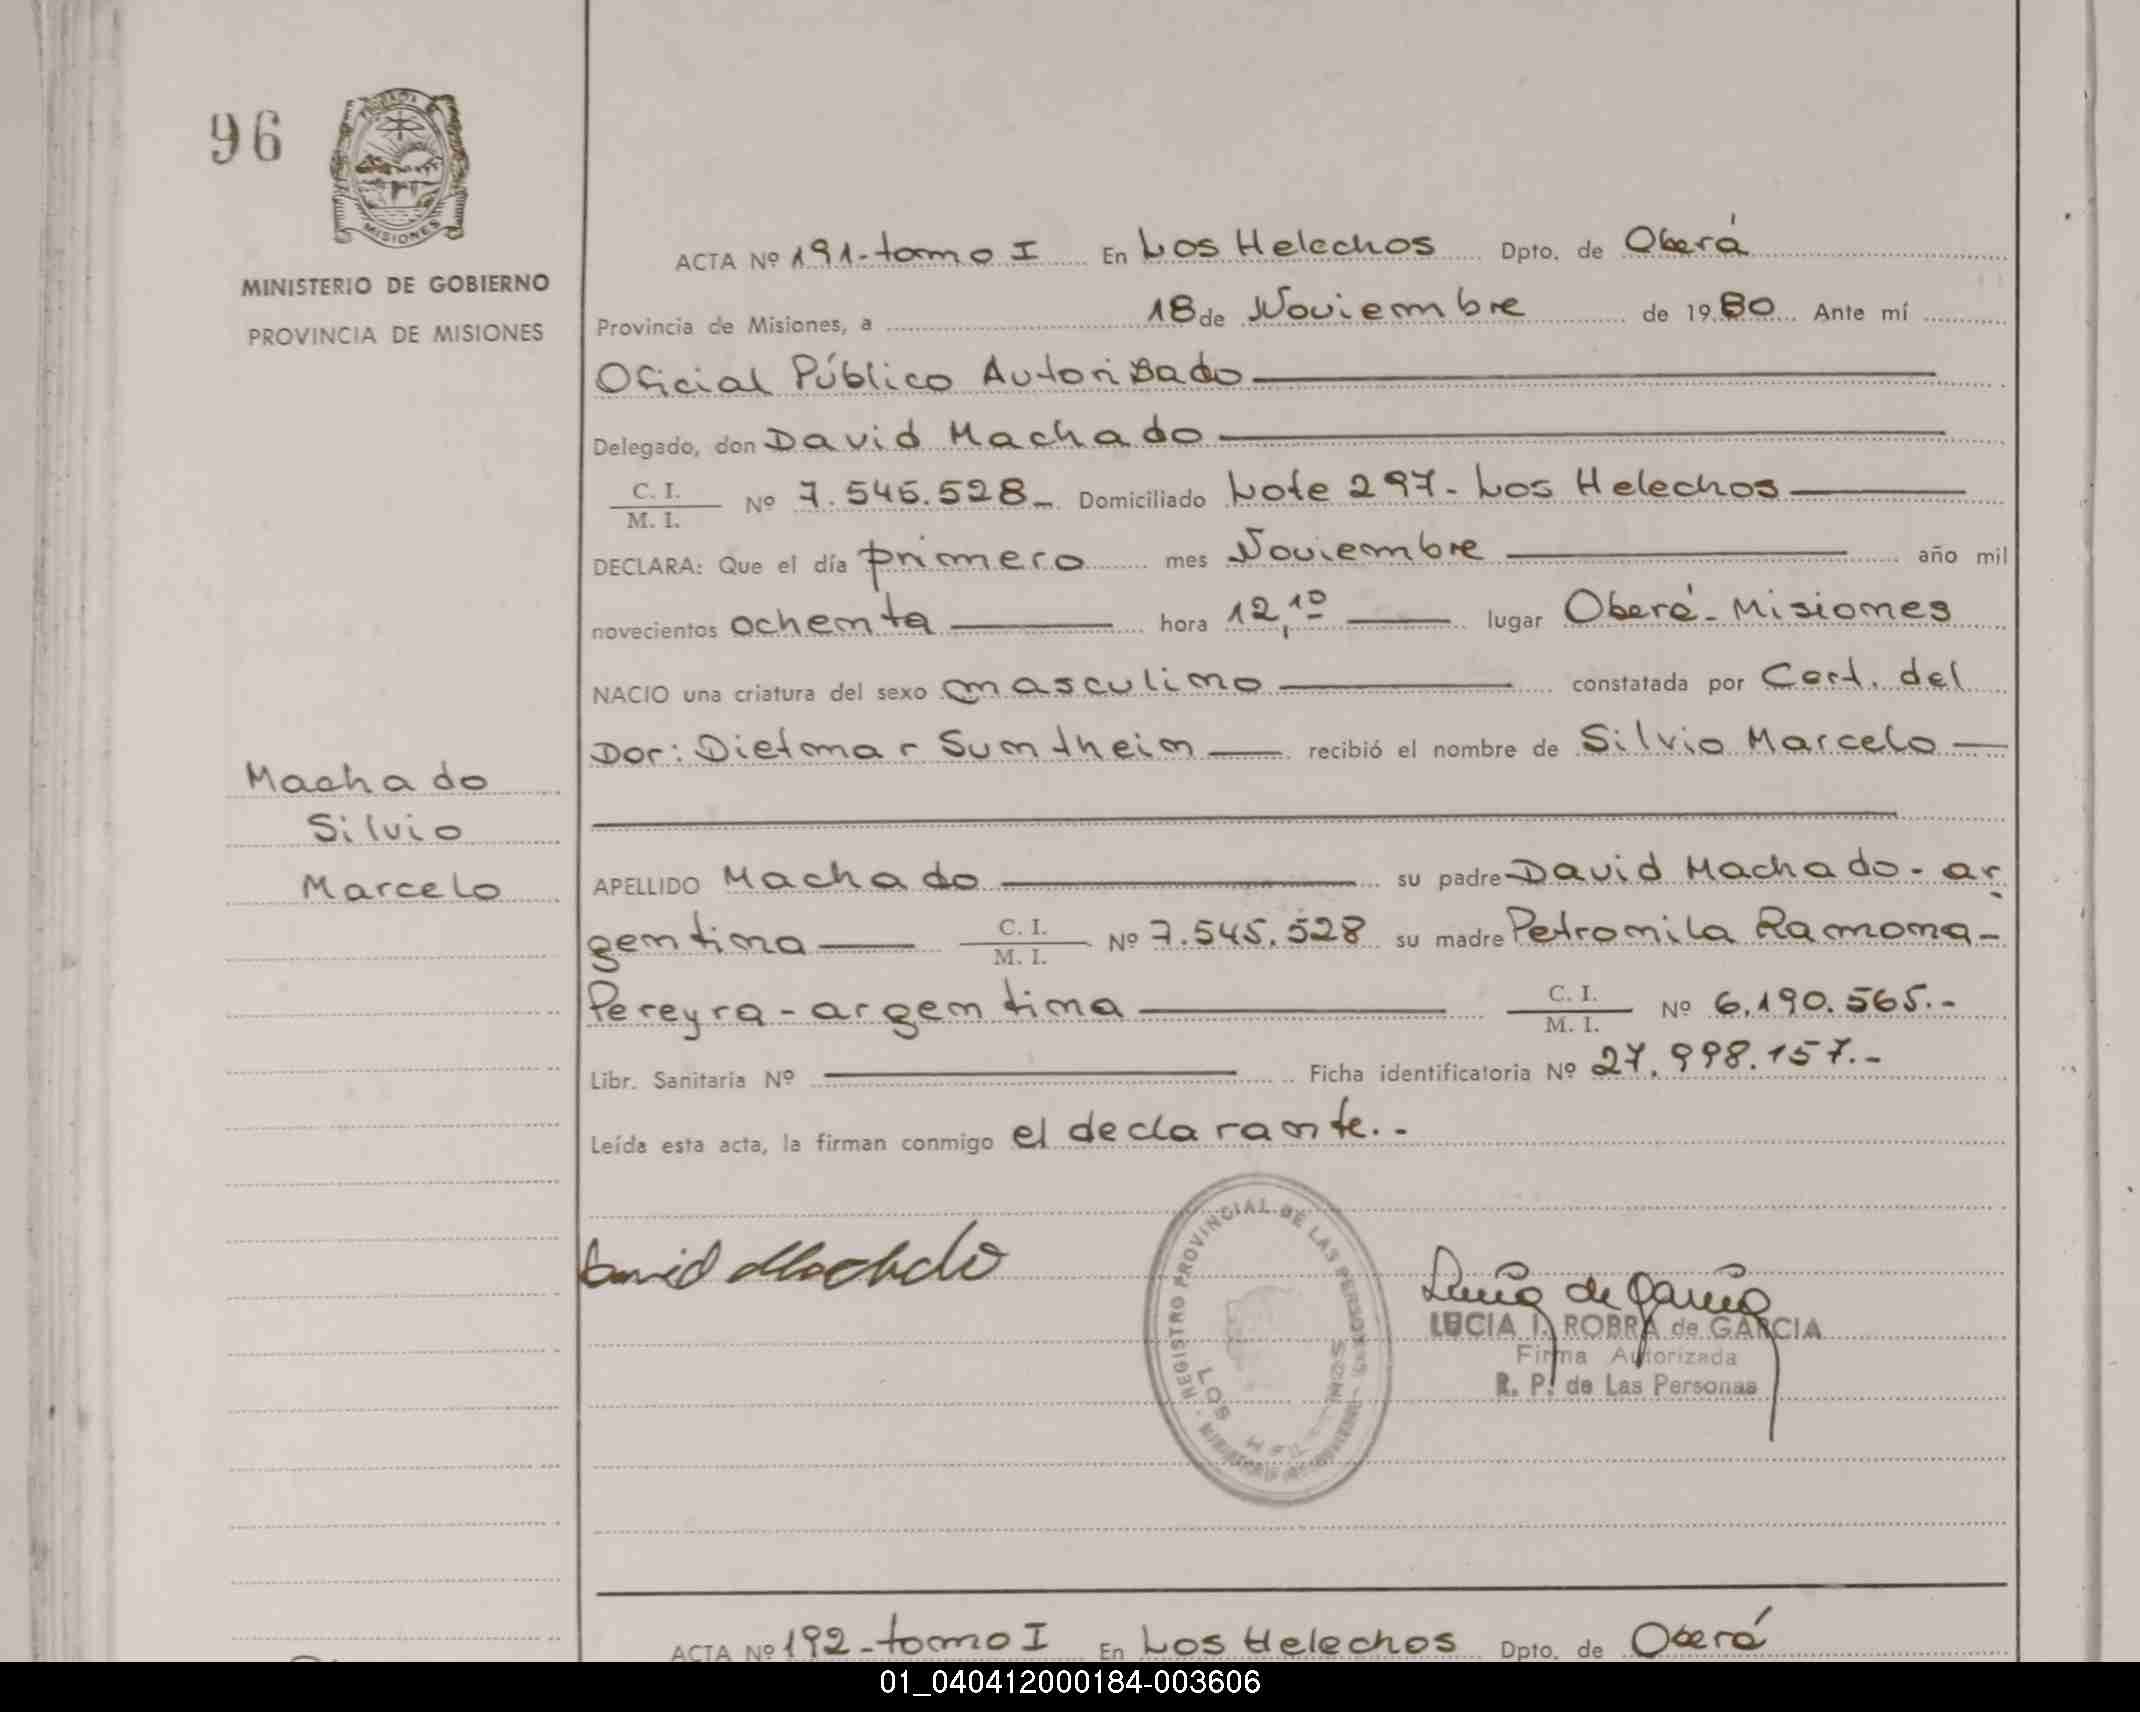 96
PROVINCIA
MISIONES
MINISTERIO DE GOBIERNO
PROVINCIA DE MISIONES
ACTA Nº 191-tomo I En Los Helechos Dpto. de Oberá
Provincia de Misiones, a 18 de Noviembre de 1980 Ante mí
Oficial Público Autorizado
Delegado, don David Machado
C. I.
M. I. Nº 7.545.528 Domiciliado Lote 297- Los Helechos
DECLARA: Que el día primero mes Noviembre año mil
novecientos ochenta hora 12,10 lugar Oberá- Misiones
NACIO una criatura del sexo masculino constatada por Cert. del
Dor: Dietmar Sumtheim recibió el nombre de Silvio Marcelo
Machado
Silvio
Marcelo
APELLIDO Machado su padre David Machado- ar
gentina C. I.
M. I. Nº 7.545.528 su madre Petronila Ramona-
Pereyra-argentina C. I.
M. I. Nº 6.190.565.-
Libr. Sanitaria Nº Ficha identificatoria Nº 27.998.157.-
Leída esta acta, la firman conmigo el declarante.-
David Machado
REGISTRO PROVINCIAL DE LAS PERSONAS
LOS
Lucía de García
LUCIA I. ROBRA de GARCIA
Firma Autorizada
R. P. de Las Personas
ACTA Nº 192-tomo I En Los Helechos Dpto. de Oberá
01_040412000184-003606